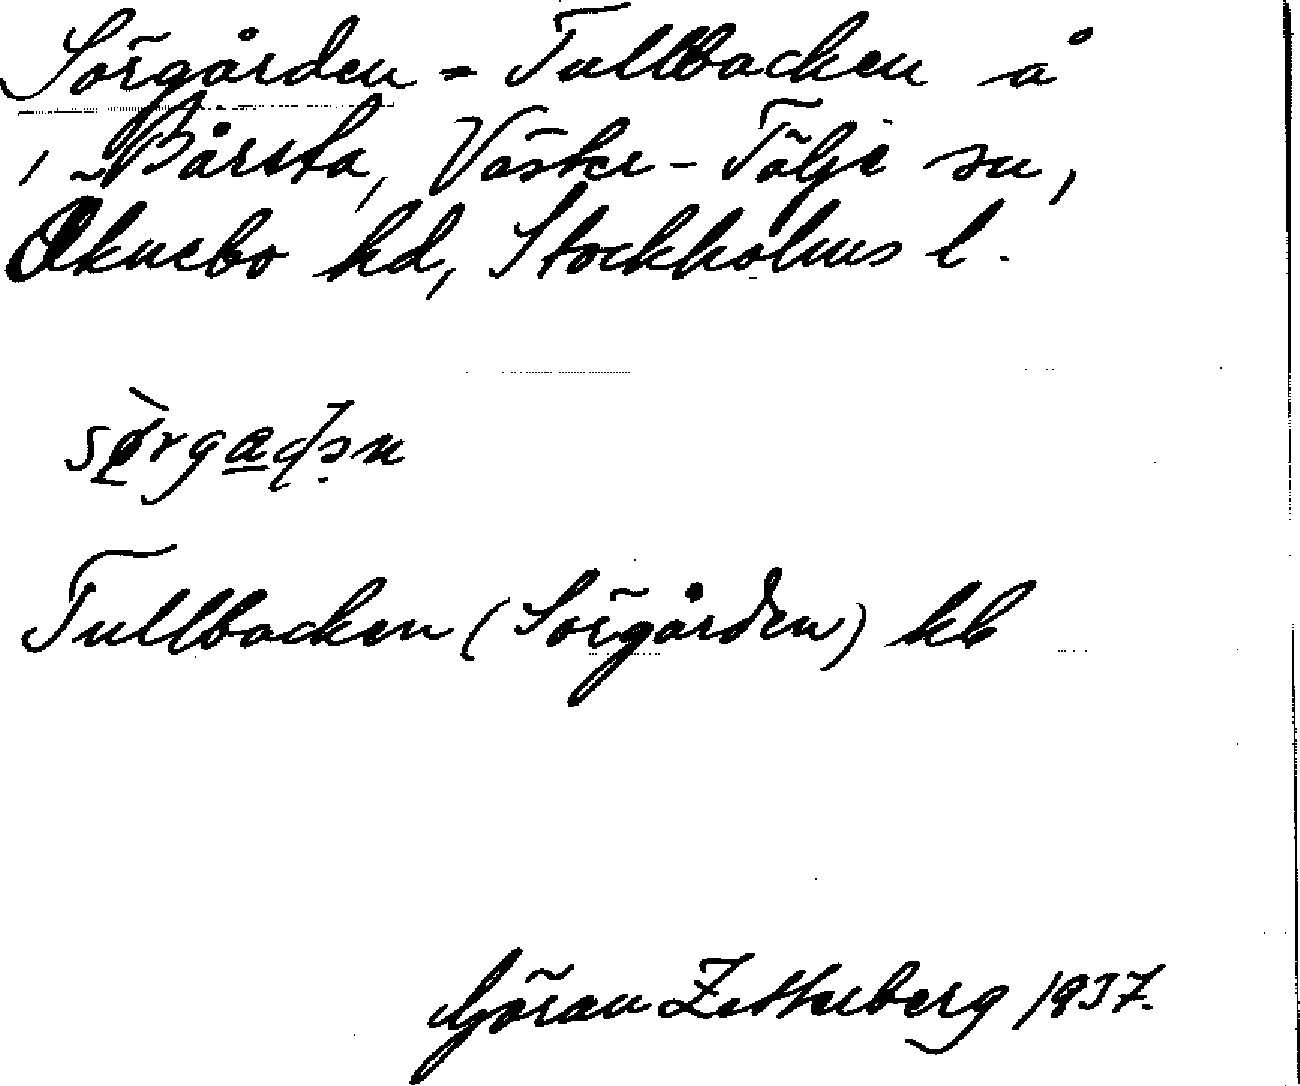 Sörgården = Tullbacken å
, Bårsta, Väster-Tälje sn,
Öknebo hd, Stockholms l.
Tullbacken (Sörgården) kb
Göran Zetterberg 1937.